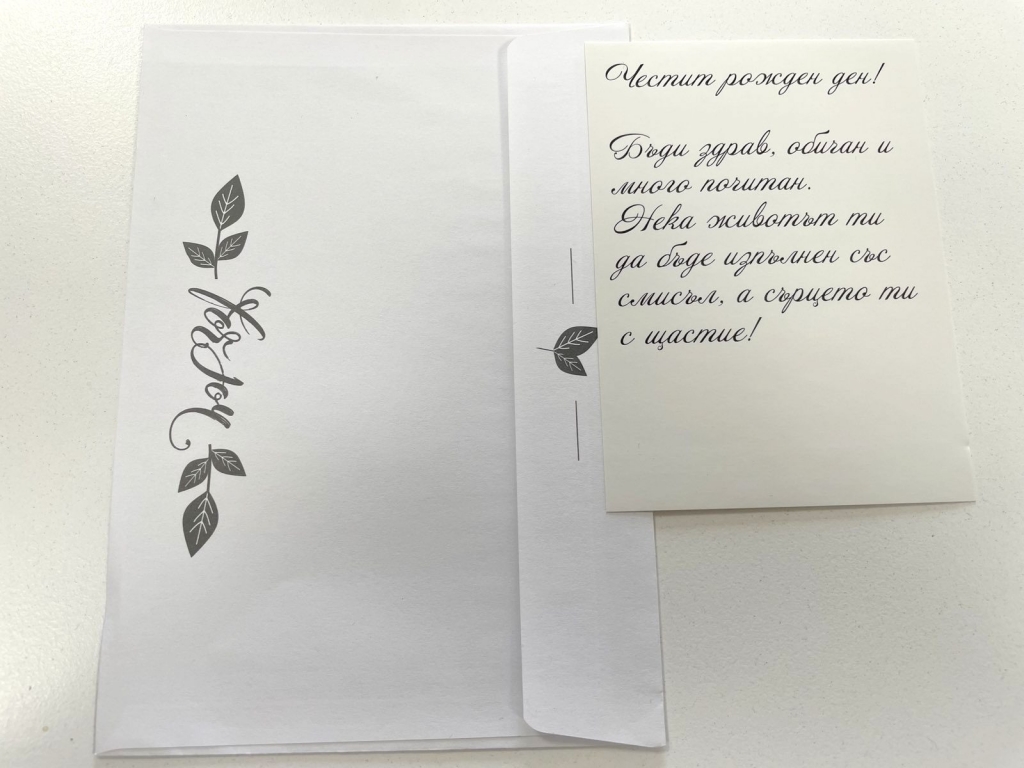 Честит рожден ден!
Бъди здрав, обичан и
много почитан.
Нека животът ти
да бъде изпълнен със
смисъл, а сърцето ти
с щастие!